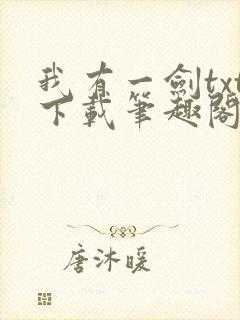 我有一劍txt
下載筆趣閣
唐沐暖